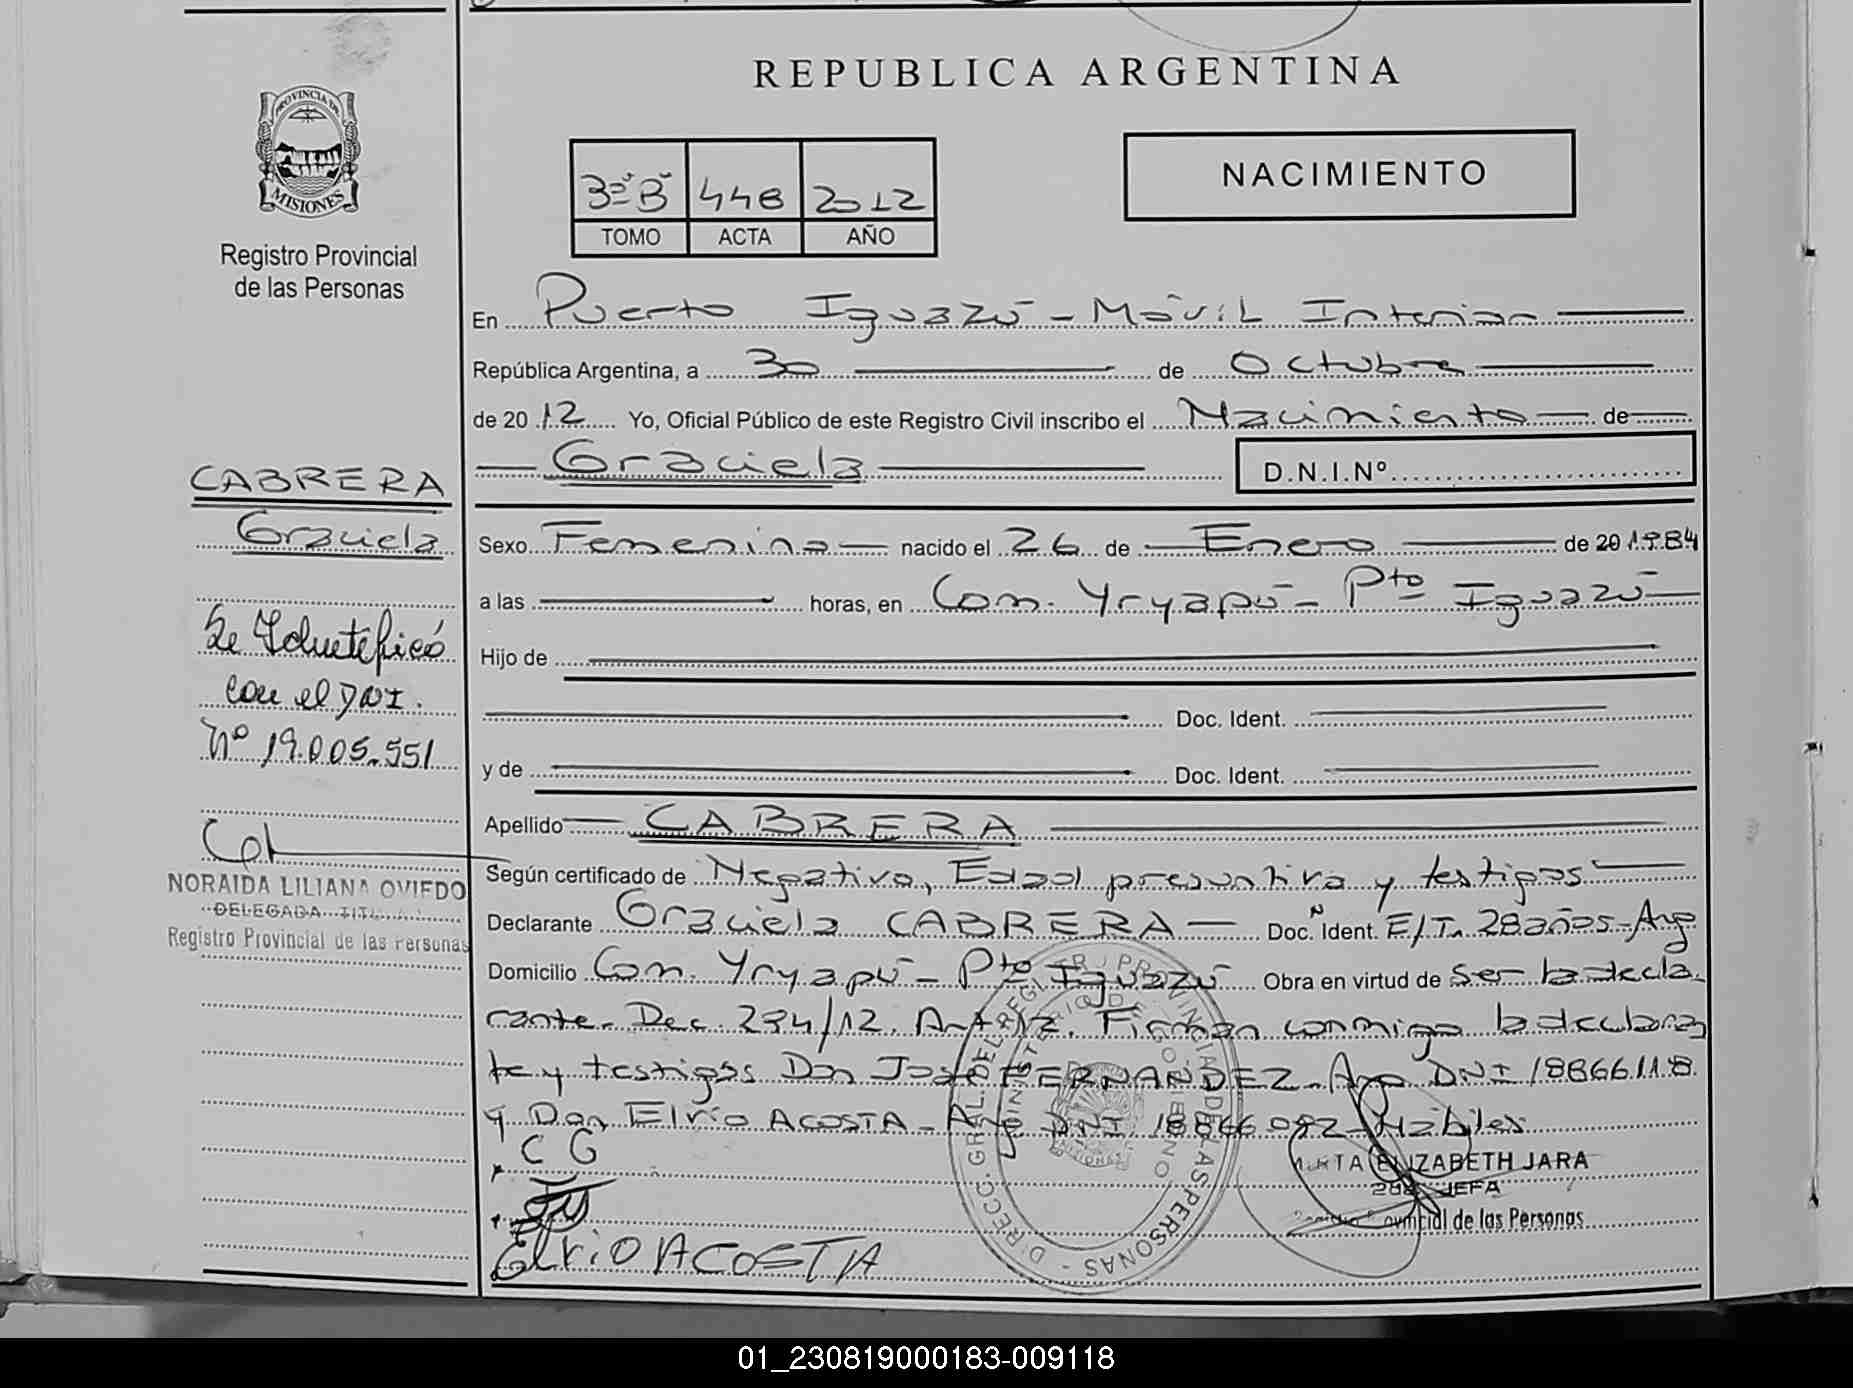 REPUBLICA ARGENTINA
PROVINCIA DE
MISIONES
Registro Provincial
de las Personas
3º "B" 448 2012
TOMO ACTA AÑO
NACIMIENTO
En Puerto Iguazú - Móvil Interior
República Argentina, a 30 de Octubre
de 2012 Yo, Oficial Público de este Registro Civil inscribo el Nacimiento de
Graciela D.N.I.Nº
CABRERA
Graciela
Se Identificó
con el DNI.
Nº 19.005.551
NORAIDA LILIANA OVIEDO
DELEGADA TITULAR
Registro Provincial de las Personas
Sexo Femenino nacido el 26 de Enero de 20 1984
a las horas, en Com. Yryapú - Pto Iguazú
Hijo de
Doc. Ident.
y de Doc. Ident.
Apellido CABRERA
Según certificado de Negativo, Edad presuntiva y testigos
Declarante Graciela CABRERA Doc. Ident. E/T. 28 años - Arg
Domicilio Com. Yryapú - Pto Iguazú Obra en virtud de ser la decla
rante. Dec. 294/12. Art. Firman conmigo la declaran
te y testigos Don José FERNANDEZ - Arg DNI 18866118.
y Don Elvio ACOSTA - Arg DNI 18866092 - Hábiles
C G
ElviO ACOSTA
DIRECC. GRAL. DEL REGISTR. PROVINCIAL DE LAS PERSONAS
MINISTERIO DE GOBIERNO
MISIONES
ELIZABETH JARA
JEFA
Provincial de las Personas
01_230819000183-009118